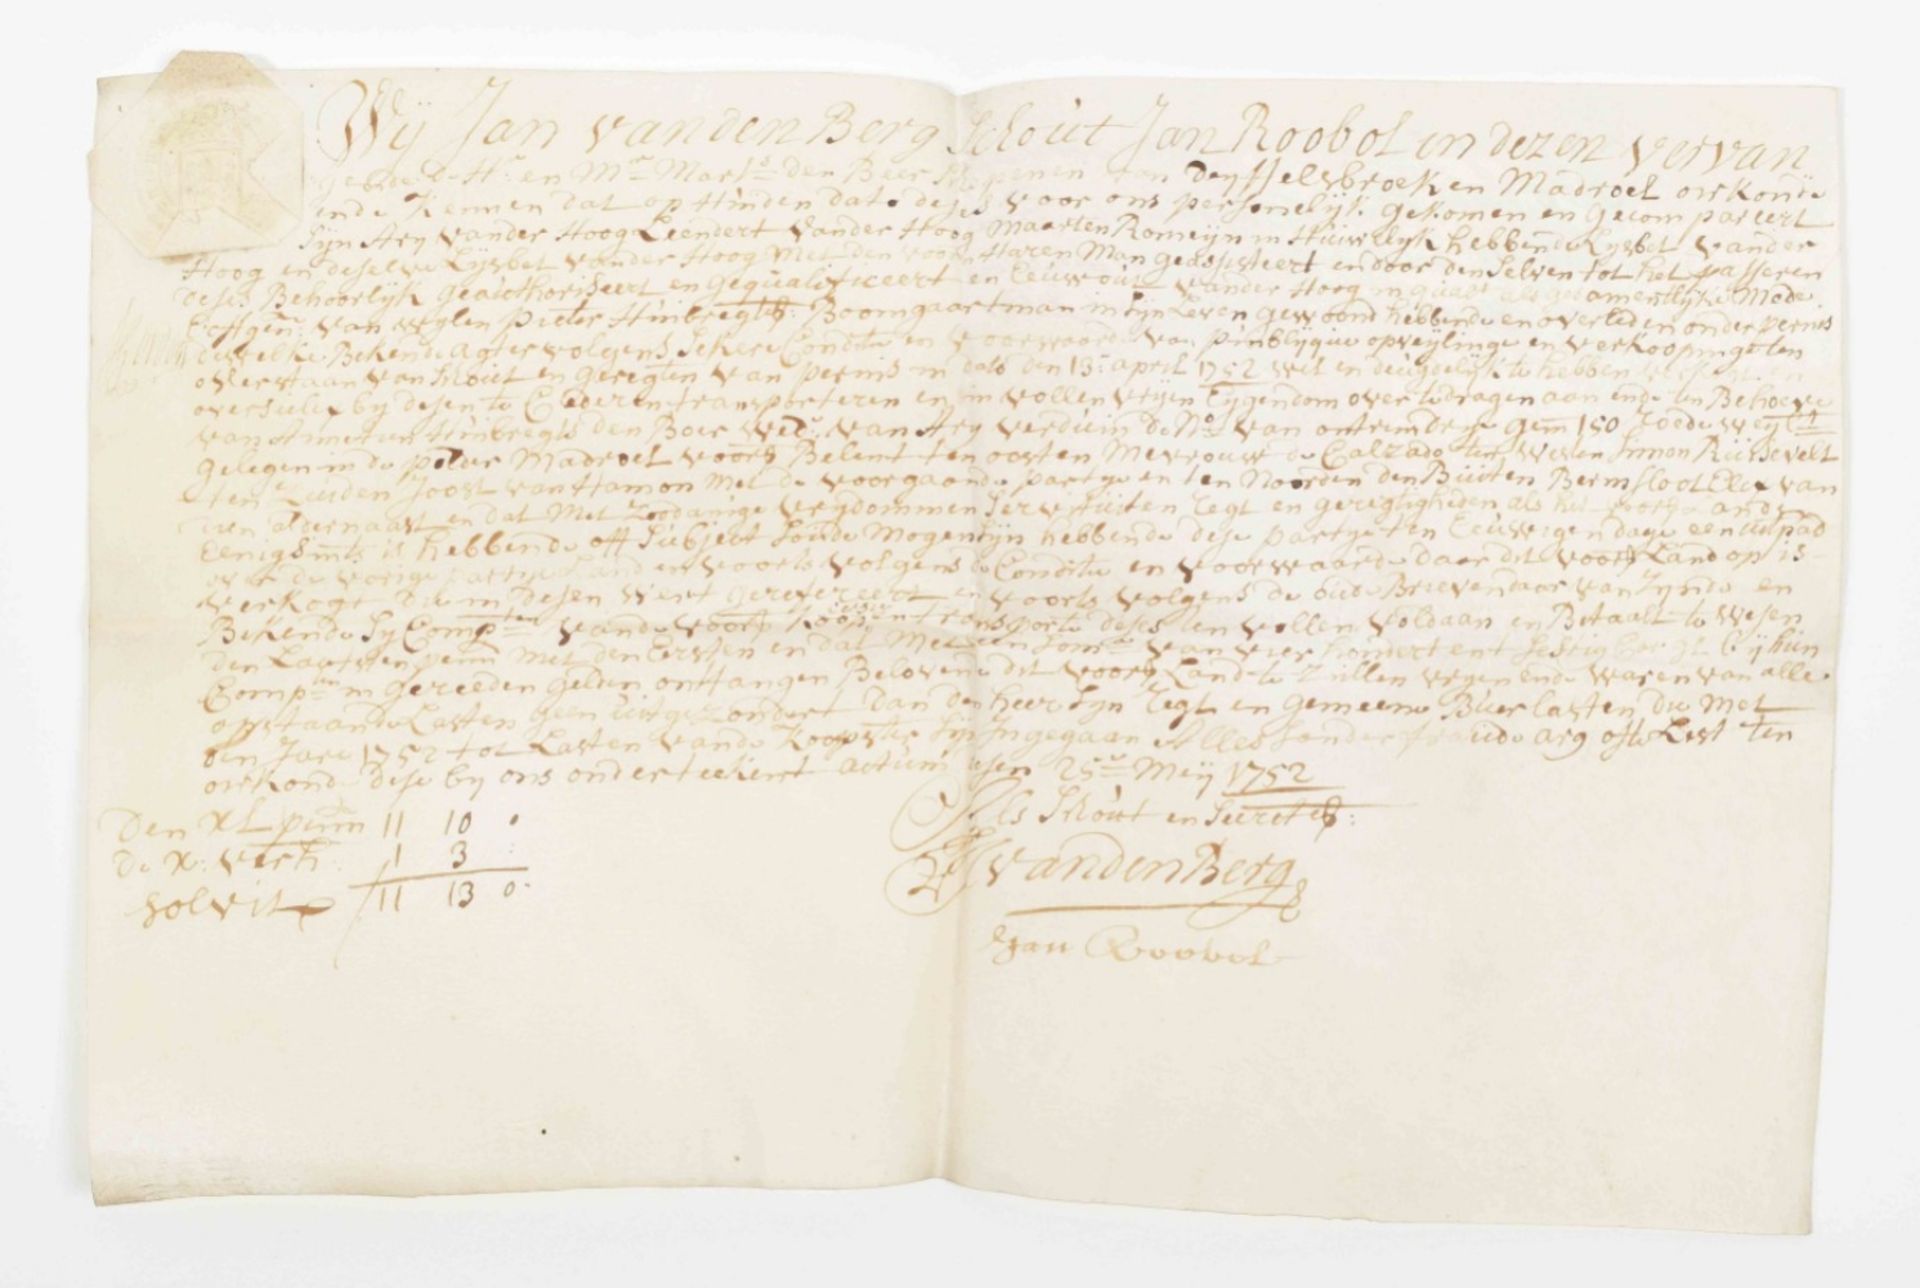 Wij Jan van den Berg Schout Jan Roobol in dezen vervan
gende d. Hr. en Mr. den Beer Schepenen van Deyffelsbroek en Madroel oirkonde
ende Kennen dat op Huiden dato deses voor ons personelijk gekomen en gecompareert
Sijn Ary vander Hoog Leendert vander Hoog Maarten Romeijn in Huiwelijk hebbende Lijsbet vander
Hoog en deselve Lijsbet vander Hoog met den voorn Haren Man geadsisteert en door den Selven tot het passeren
deses Behoorlijk geauthoriseert en gequalificeert en Leeuwout vander Hoog in qualt als gesamentlijke Mede
Erffgen: van wijlen Pieter Huibregtse: Boomgaartman in sijn Leven gewoond hebbende en overleden onder pernis
dewelke Bekende agtervolgens Sekere Conditie en voorwaarde van publijque opveijlinge en verkoopinge ten
overstaan van Schout en geregten van pernis in dato den 13: april 1752 wel en deugdelijk te hebben verkogt en
oversulx by desen te Cederen transporteren en in vollen vrijen Eijgendom over te dragen aan ende ten Behoeve
van Huibregts den Boer Wedu: van Ary Verduin de No van ontrend gem 150 Roede weij
gelegen in de polder Madroel voors Belent ten oosten Mevrouw de Calzado ten westen Simon Ruijsevelt
ten Zuiden Joost van Hamon met de voorgaande partye en ten Noorden den Buiten Bermsloot Elex van
hen aldernaast en dat Met zoodanige vrijdommen Servituiten Regt en geregtigheden als het voors ande
Eenigsints is hebbende off Subject Soude Mogen sijn hebbende dese partye ten Eeuwigen dage een uijtpad
over de vorige partye Land en voorts volgens de Conditie en voorwaarde daar dit voors Land op is
verkogt die in desen wert gerefereert en voorts volgens de oude Brieven daar van Zijnde en
Bekende Sy Compten vande voors Koop en transporte deses ten vollen voldaan en Betaalt te wesen
den Laatsten penn met den Eersten en dat Met een Somme van vier hondert ent Sestig Car gl by hun
Compten in gereeden gelden ontfangen Belovende dit voors Land te Zullen vrijen ende waren van alle
opstaande Lasten geen uitgezondert dan den heer Syn Regt en gemeene Buerlasten die met
den Jare 1752 tot Lasten vande Koopster Sijn Ingegaan Alles Sonder fraude arg ofte List Ten
oirkonde dese by ons onderteekent actum desen 25e Meij 1752
Als Schout en Secrets:
VandenBerg
Jan Roobol
Den XL penn 11 10
De X: verh: 1 3
Solvit 11 13 0